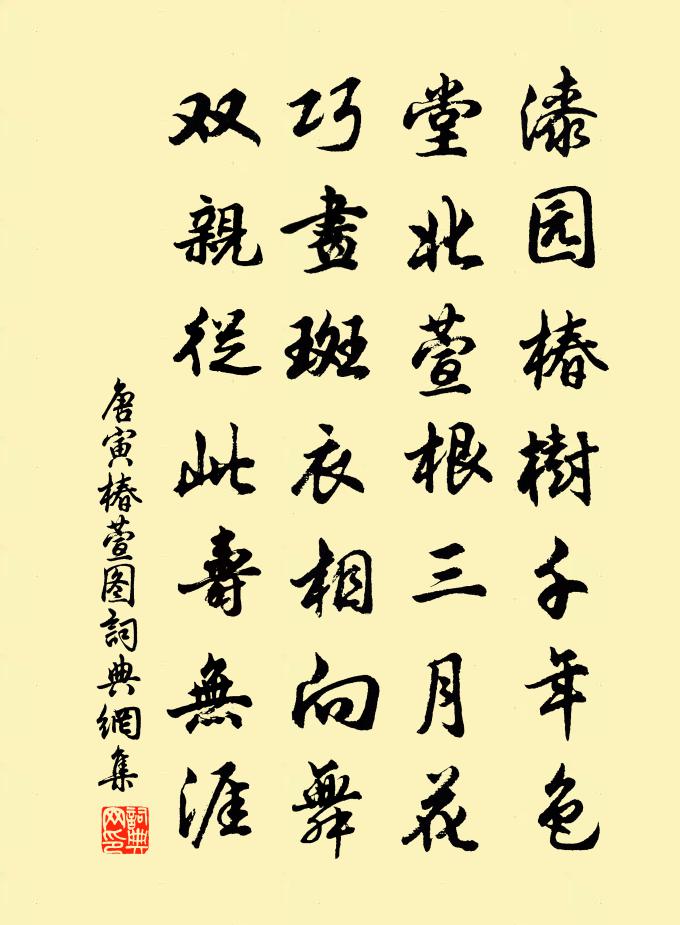 漆园椿樹千年色
堂北萱根三月花
巧畫斑衣相向舞
双親從此壽無涯
唐寅椿萱图詞典網集
詞典网印